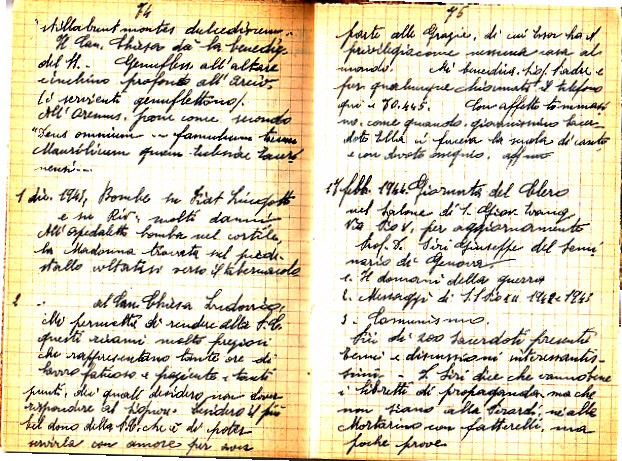 74
"stillabunt montes dulcedinem."
Il Can. Chiesa dà la benediz.
del SS. - Genufless. all'altare
e inchino profondo all'Arciv.
(i servienti genuflettono).
All'Oremus, pone come secondo
"Deus omnium ... famulum tuum
Maurilium quem Ecclesiae Tauri
nensi...
1 dic. 1943, Bombe su Fiat Lingotto
e su Riv: molti danni
All'Ospedaletto bomba nel cortile,
la Madonna trovata sul piedi-
stallo voltatasi verso il tabernacolo
2 al Can. Chiesa Ludovico,
Mi permetta di rendere alla S.V.
questi ricami molto preziosi
che rappresentano tante ore di
lavoro fatioso e paziente e tanti
punti, dei quali desidero non dover
rispondere al Signore. Desidero il più
bel dono della S.V. che è di poter
servirla con amore per aver
75
parte alle Grazie, di cui Essa ha il
privilegio come nessuna casa al
mondo. Mi benedica, Rev. Padre e
per qualunque chiamata il telefono
qui è 70.445. Con affetto immuta-
to, come quando, giovanissimo sacer-
dote Ella ci faceva la scuola di canto
e con devoto ossequio, aff.mo
17 febb. 1944 Giornata del Clero
nel salone di S. Giov. Evang.
Via Pio V, per aggiornamento
Prof. D. Siri Giuseppe del Semi
nario di Genova
1. Il domani della guerra
2. Messaggi di S.S. Pio XII 1942 e 1943
3. Comunismo.
Più di 200 sacerdoti presenti
Temi e discussioni interessantis-
simi - D. Siri dice che vanno bene
i libretti di propaganda, ma che
non siano alla Girardi, né alla
Mortarino con fatterelli, ma
poche prove